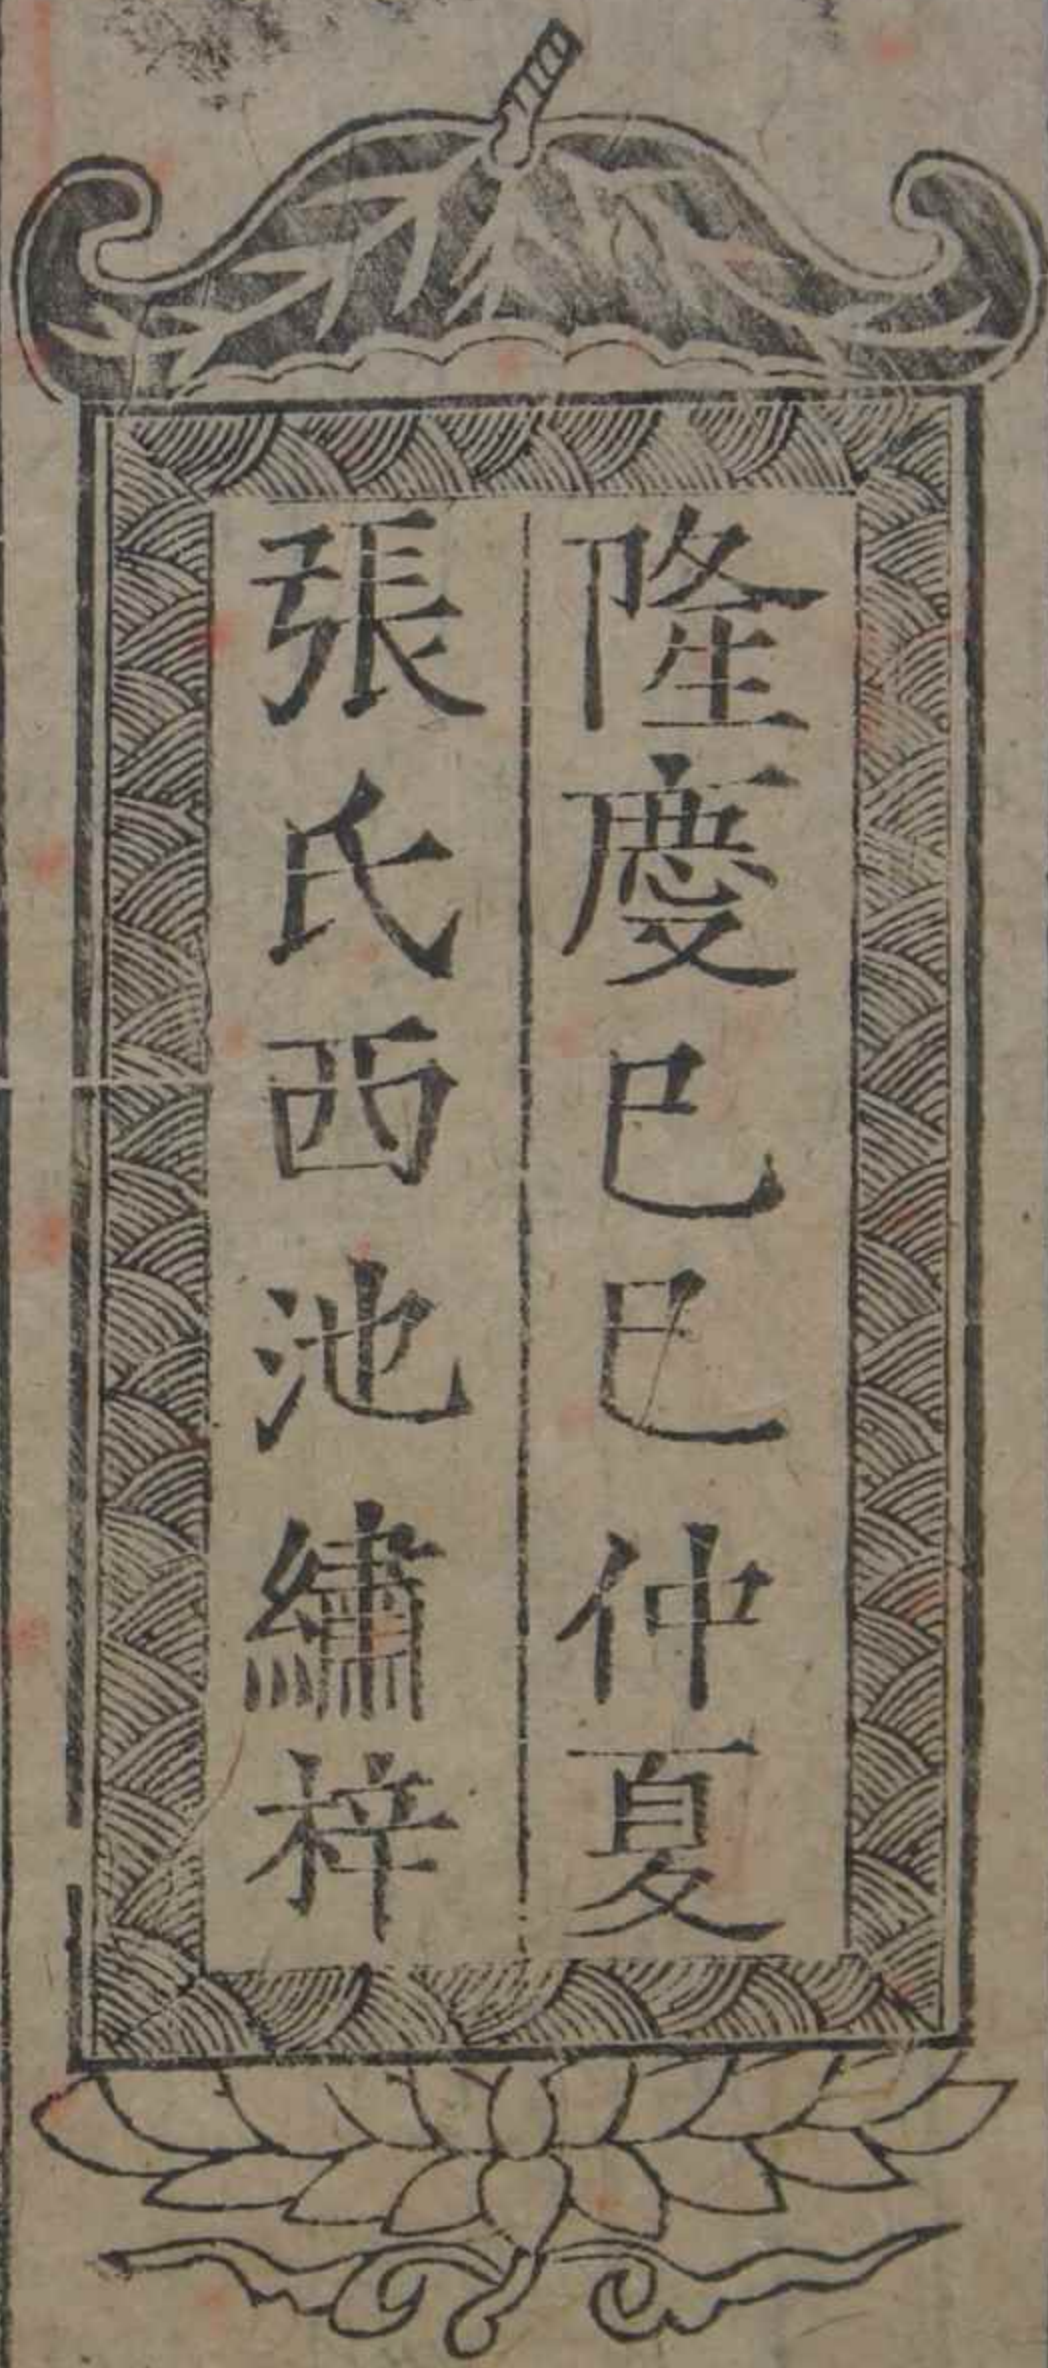 隆慶己巳仲夏
張氏西池繡梓